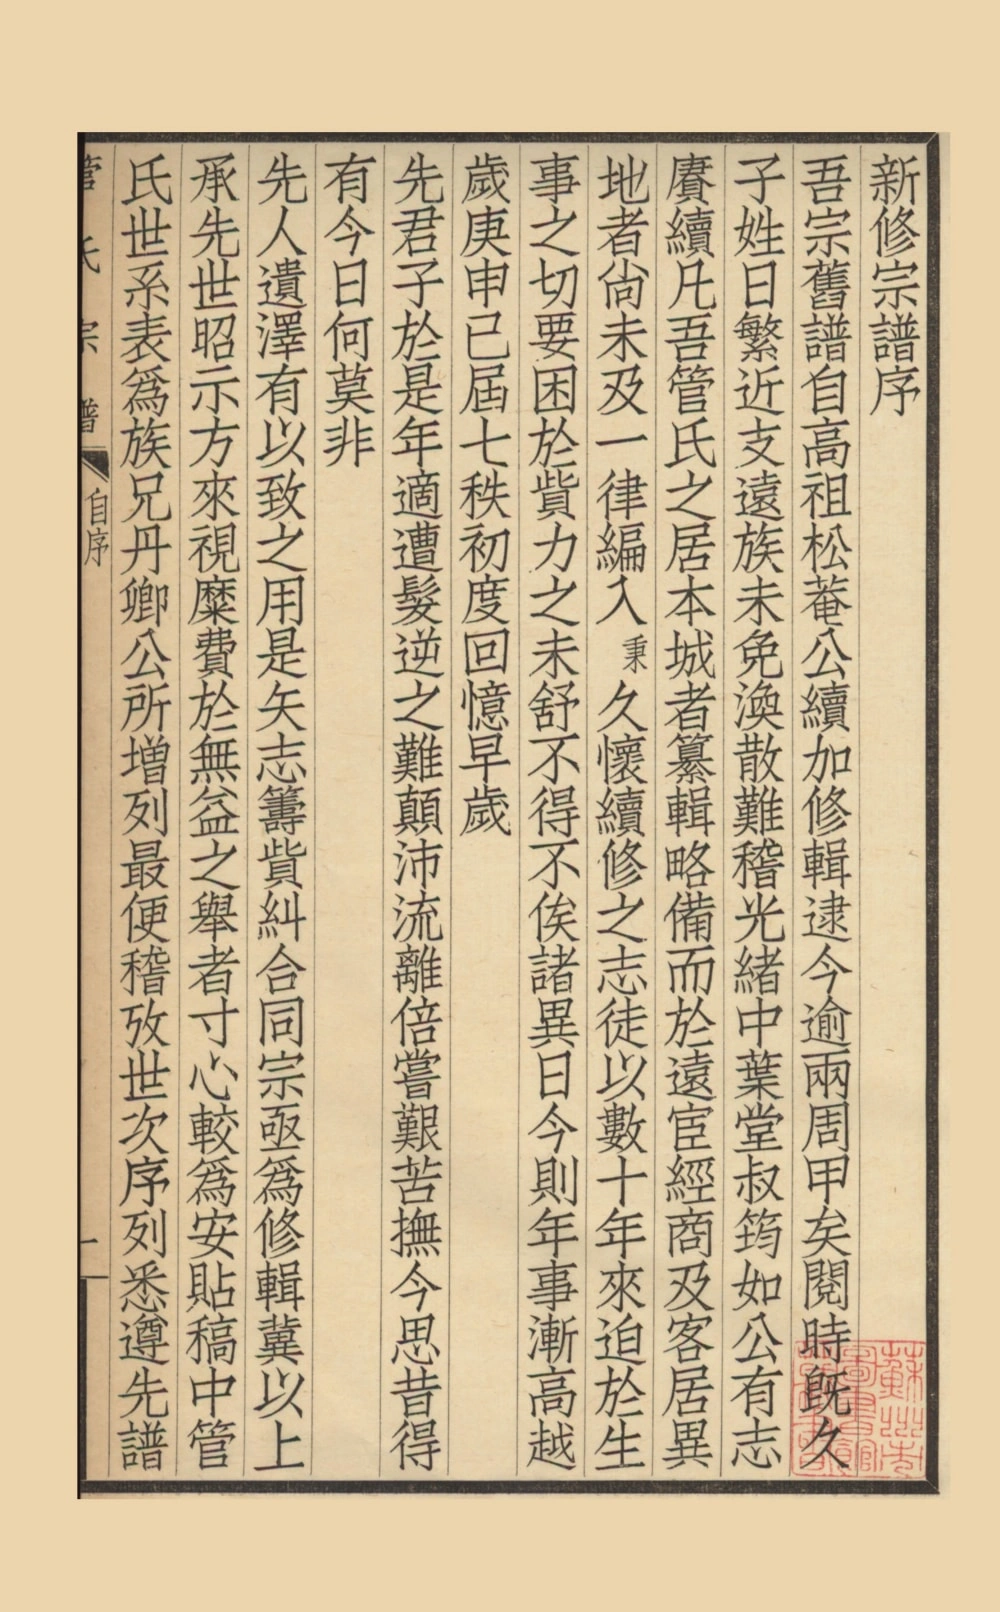 新修宗譜序
吾宗舊譜自高祖松菴公續加修輯逮今逾兩周甲矣閱時旣久
子姓日繁近支遠族未免渙散難稽光緒中葉堂叔筠如公有志
賡續凡吾管氏之居本城者纂輯略備而於遠宦經商及客居異
地者尙未及一律編入秉久懷續修之志徒以數十年來迫於生
事之切要困於貲力之未舒不得不俟諸異日今則年事漸高越
歲庚申已屆七秩初度回憶早歲
先君子於是年適遭髮逆之難顛沛流離倍嘗艱苦撫今思昔得
有今日何莫非
先人遺澤有以致之用是矢志籌貲糾合同宗亟爲修輯冀以上
承先世昭示方來視糜費於無益之舉者寸心較爲安貼稿中管
氏世系表爲族兄丹卿公所增列最便稽攷世次序列悉遵先譜
管氏宗譜
自序
一
蘇州市
圖書館
藏書